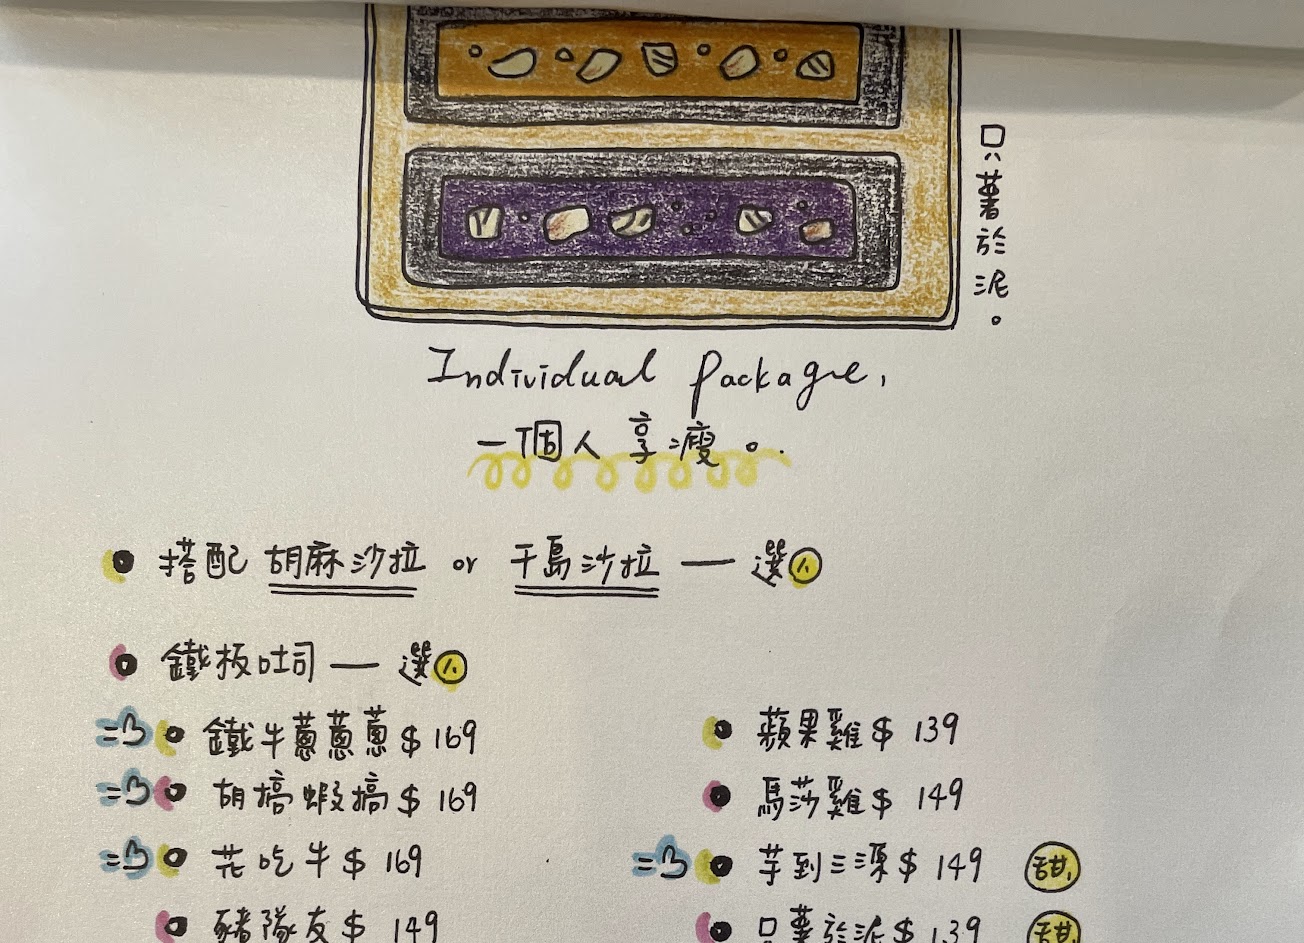 只薯於泥。
Individual Package,
一個人享瘦。
搭配 胡麻沙拉 or 千島沙拉 一 選
鐵板吐司 一 選
鐵牛蔥蔥蔥 $ 169
蘋果雞 $ 139
胡搞蝦搞 $ 169
馬莎雞 $ 149
花吃牛 $ 169
芋到三源 $ 149 甜
豬隊友 $ 149
只薯於泥 $ 139 甜